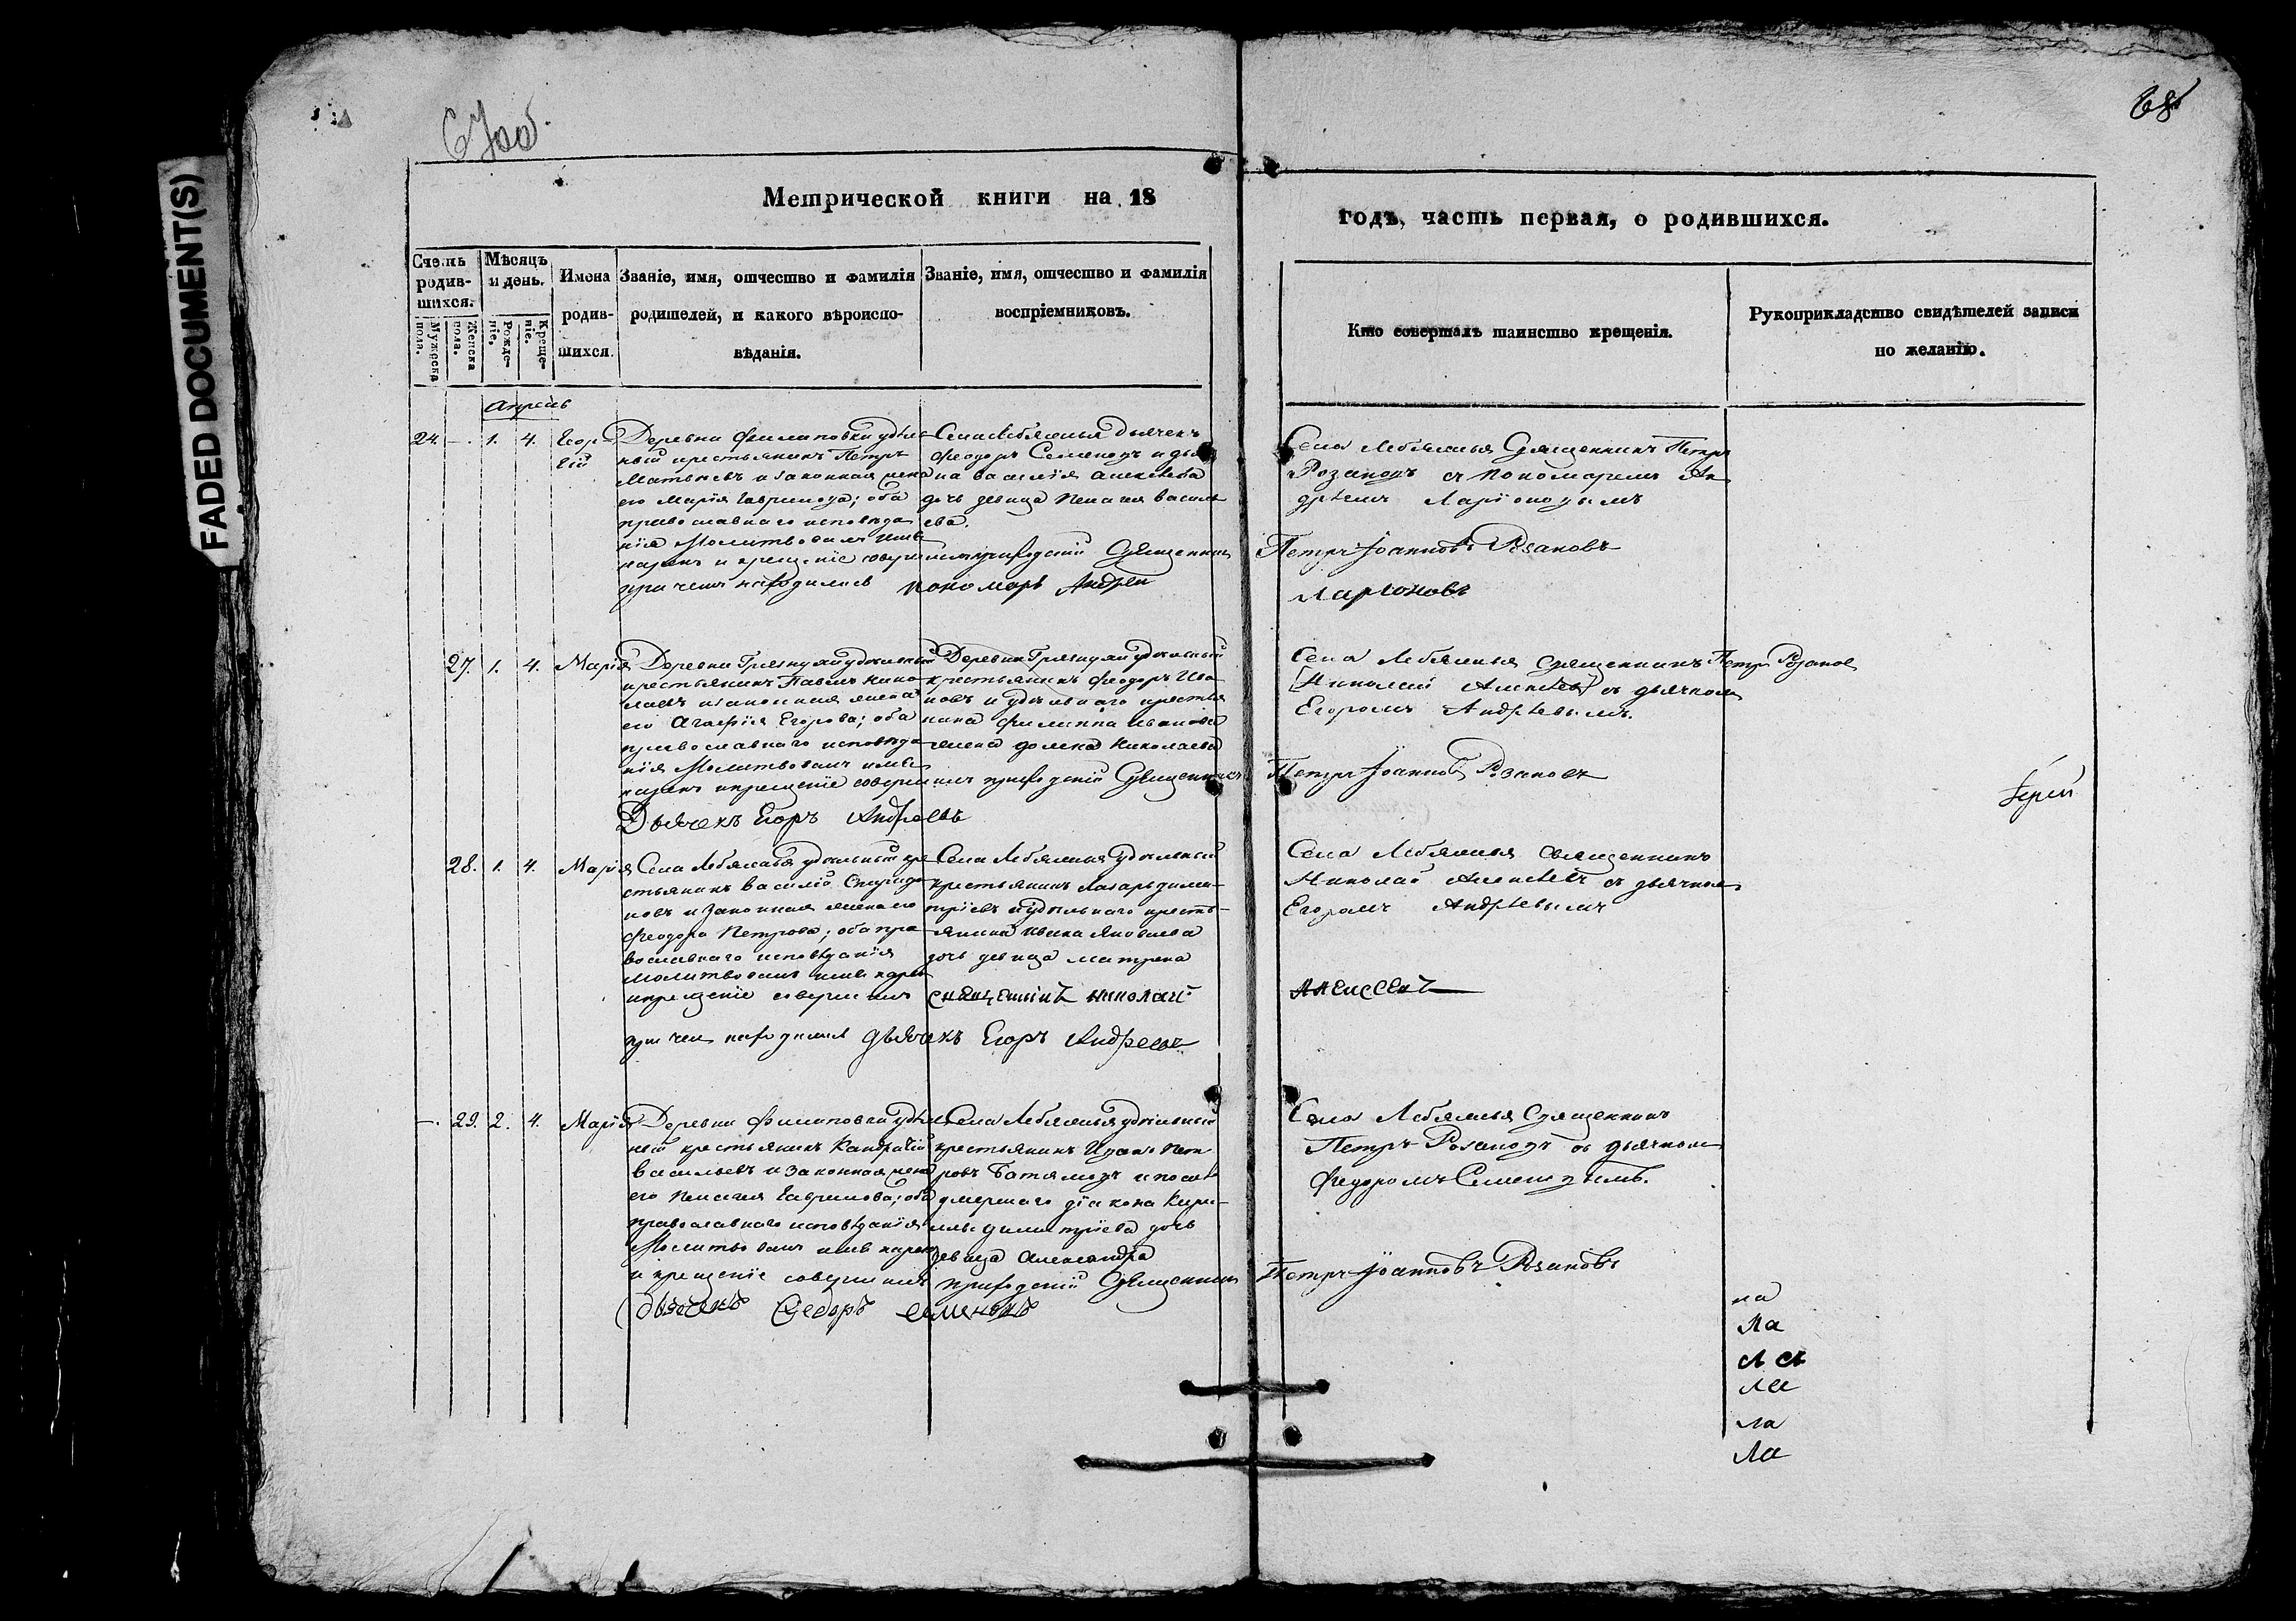 67об.
68
FADED DOCUMENT(S)
Метрической книги на 18
годъ, часть первая, о родившихся.
Счетъ родив-шихся.
Мужеска пола.
Женска пола.
Мѣсяцъ и день.
Рожде-ніе.
Креще-ніе.
Имена
родив-
шихся.
Званіе, имя, отчество и фамилія
родителей, и какого вѣроиспо-
вѣданія.
Званіе, имя, отчество и фамилія
воспріемниковъ.
Кто совершалъ таинство крещенія.
Рукоприкладство свидѣтелей записи
по желанію.
Апрель
24. —. 1. 4.
Геор
гій
Деревни Филиповки удѣль
ный крестьянинъ Петръ
Матвѣевъ и законная жена
его Марія Гаврилова; оба
православнаго исповѣда
нія Молитвовалъ имя
нарекъ и крещеніе совершилъ приходскій Священникъ
при чемъ находился пономарь Андрей
Села Лебяжья дьячекъ
Феодоръ Семеновъ и дья
на Василія Алексѣева
дочь девица Пелагея Василь
ева.
Села Лебяжья Священникъ Петръ
Розановъ съ пономаремъ Ан
дрѣемъ Ларіоновымъ
Петръ Іоанновъ Розановъ
Ларионовъ
27. 1. 4. Марія
Деревни Грязнухи удѣльный
крестьянинъ Павелъ Нико
лаевъ и законная жена
его Агафія Егорова; оба
православнаго исповѣда
нія Молитвовалъ имя
нарекъ и крещеніе совершилъ приходскій Священникъ
Дьячекъ Егоръ Андреевъ
Деревни Грязнухи удѣльный
крестьянинъ Феодоръ Ива
новъ и удѣльнаго крестья
нина Филиппа Иванова
жена Домна Николаева
Села Лебяжья священникъ Петръ Розановъ
[Николай Алексѣевъ] съ дьячкомъ
Егоромъ Андрѣевымъ.
Петръ Іоанновъ Розановъ
Іерей
28. 1. 4. Марія
Села Лебяжья удѣльный кре
стьянинъ Василій Спиридо
новъ и законная жена его
Феодора Петрова; оба пра
вославнаго исповѣданія
молитвовалъ имя нарекъ
и крещеніе совершилъ священникъ николай
при чемъ находился дьячекъ Егоръ Андреевъ
Села Лебяжья удѣльный
крестьянинъ Лазарь Дими-
тріевъ и удѣльнаго кресть-
янина Ивана Яковлева
дочь девица Матрена
Села Лебяжья священникъ
Николай Алексѣевъ съ дьячкомъ
Егоромъ Андрѣевымъ
Алексеевъ
—. 29. 2. 4. Марія
Деревни Филиповки удѣль
ный крестьянинъ Кандратій
Васильевъ и законная жена
его Пелагея Гаврилова; оба
православнаго исповѣданія
Молитвовалъ имя нарекъ
и крещеніе совершилъ приходскій Священникъ
дьячекъ Федоръ семеновъ
Села Лебяжья удѣльный
крестьянинъ Иванъ Пет
ровъ и послѣ
умершаго діакона Кири-
лы Димитріева дочь
девица Александра
Села Лебяжья Священникъ
Петръ Розановъ съ дьячкомъ
Федоромъ Семеновымъ.
Петръ Іоанновъ Розановъ
ла
ла
ла
ла
ла